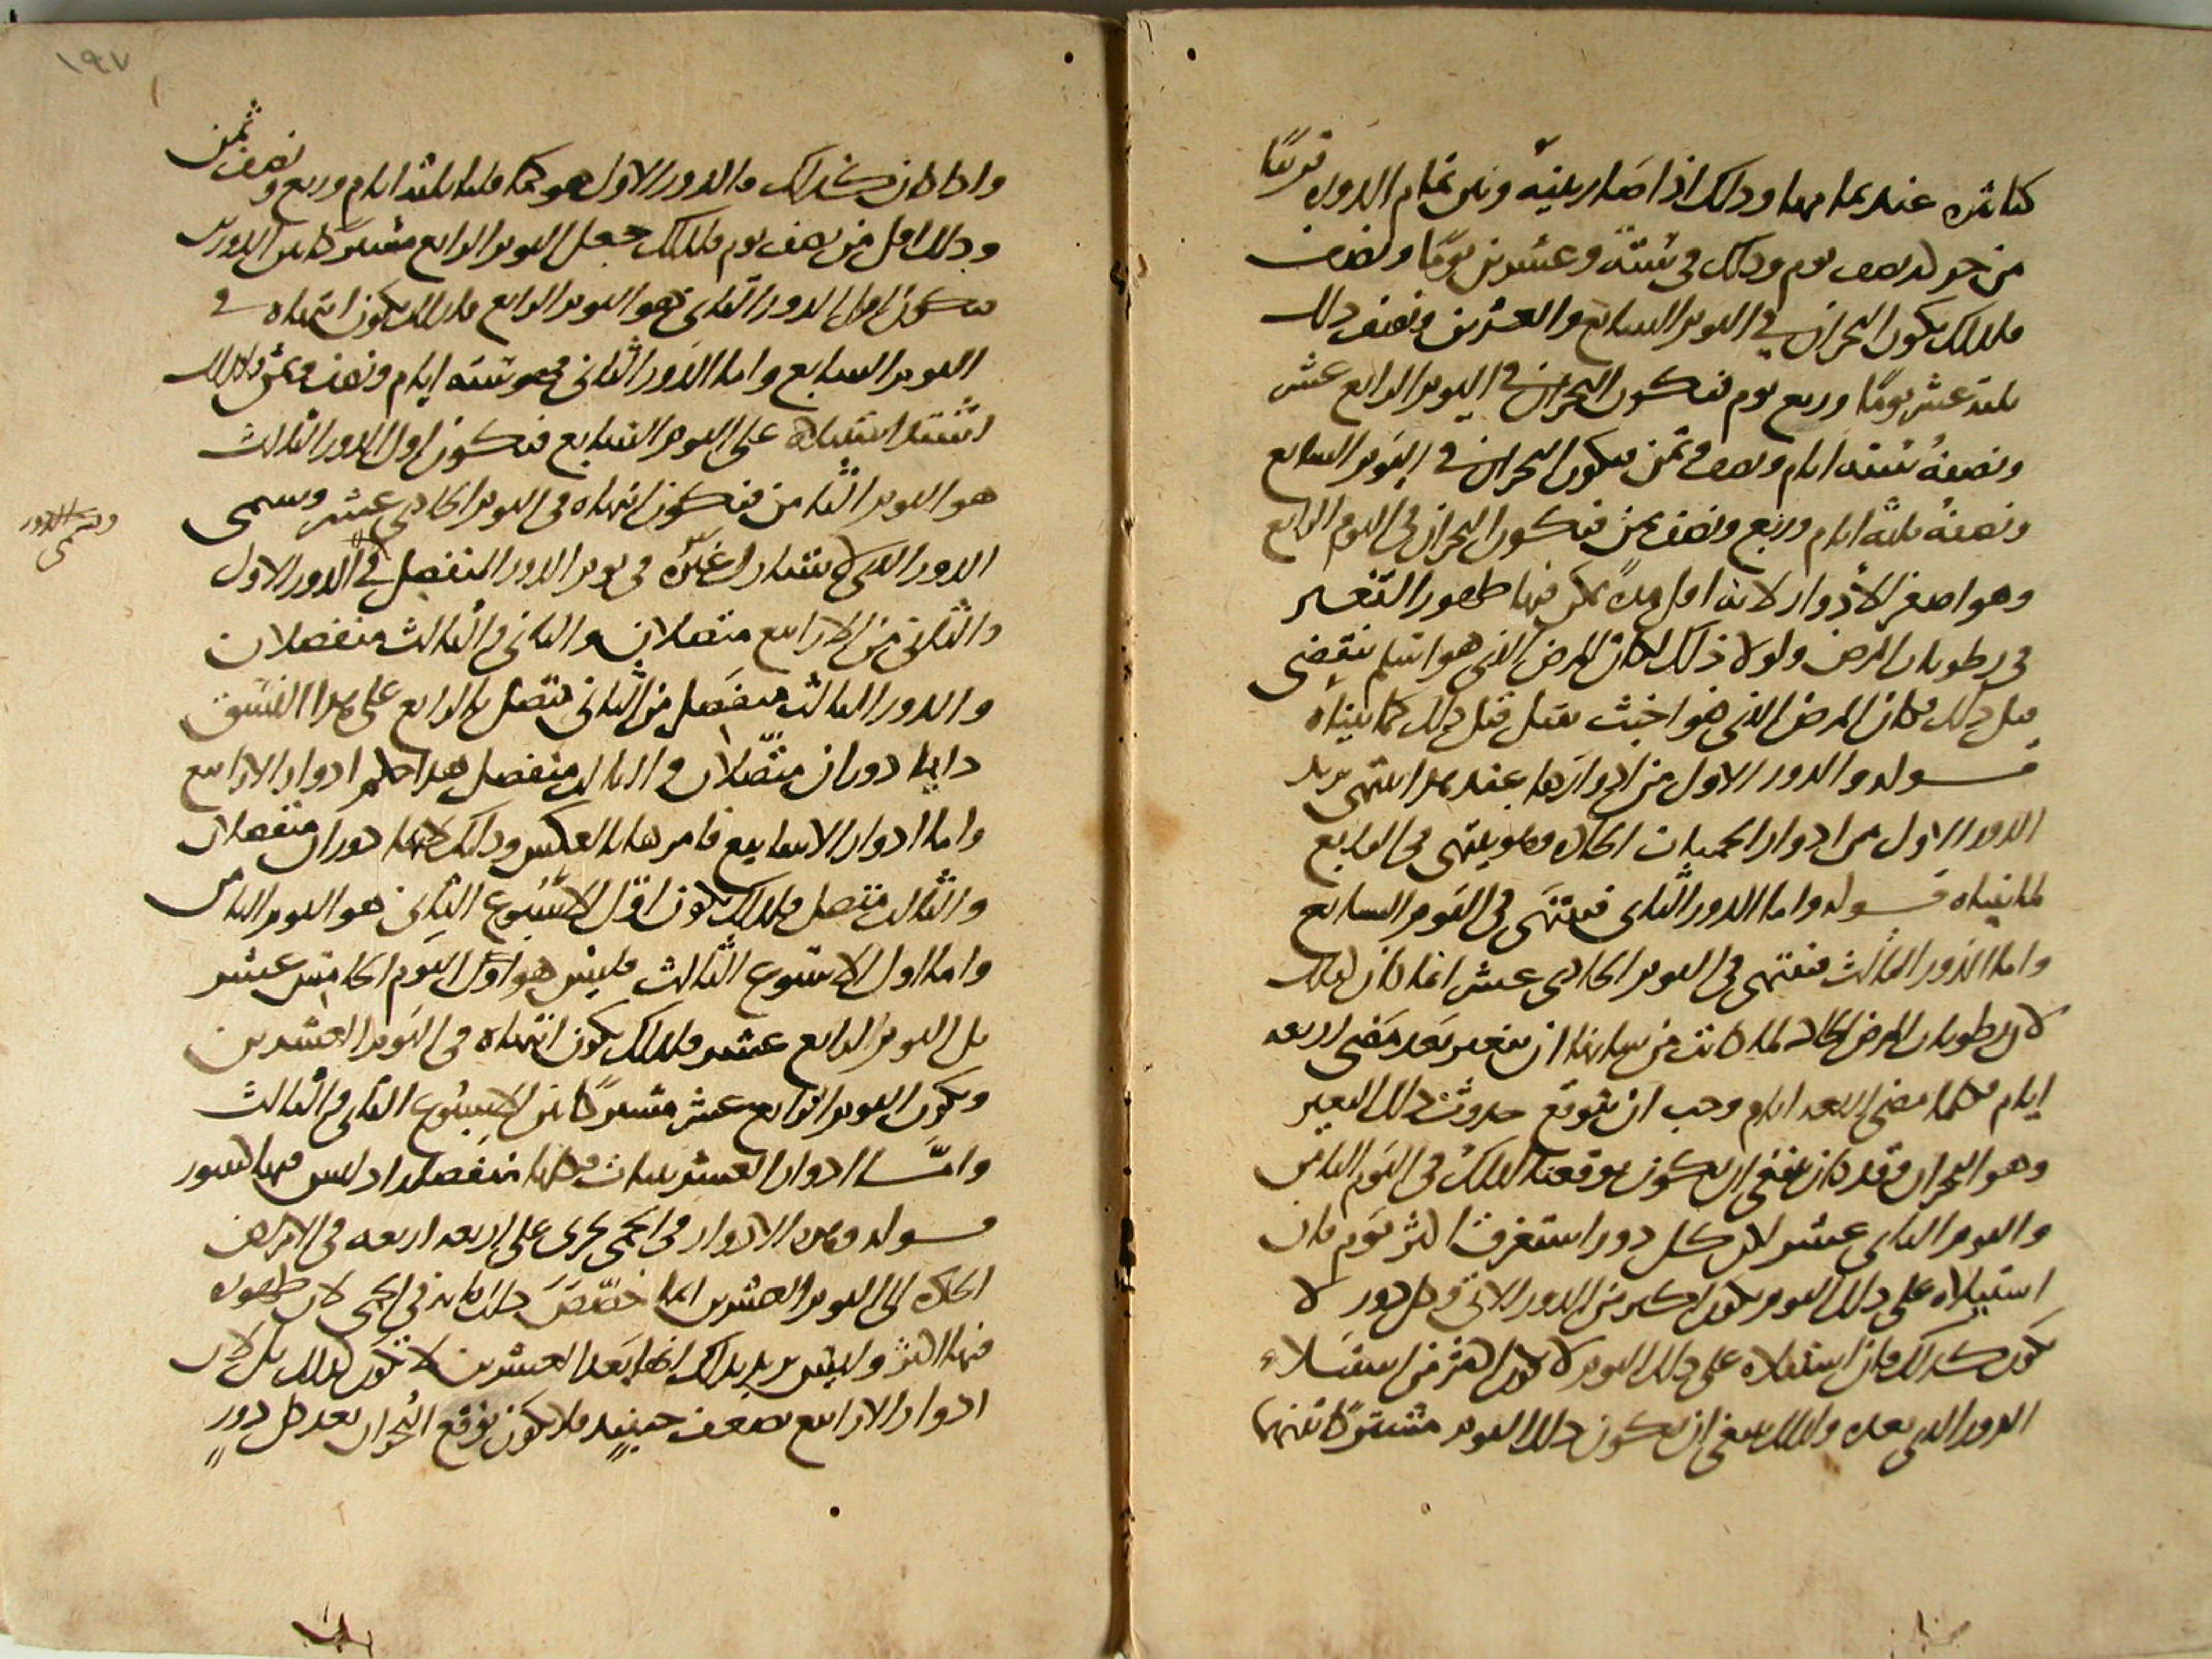 كتاثيره عند تمامها وذلك اذا صار بينه وبين تمام الدوره قريبًا
من حوله نصف يوم وذلك في ستة وعشرين يومًا ونصف
فلذلك يكون البحران في اليوم السابع والعشرين ونصف ذلك
ثلثة عشر يومًا وربع يوم فيكون البحران في اليوم الرابع عشر
ونصفه ستة ايام ونصف وثمن فيكون البحران في اليوم السابع
ونصفه ثلثه ايام وربع ونصف ثمن فيكون البحران في اليوم الرابع
وهو اصغر الأدوار لانه اول مدةٍ يمكن فيها ظهور التغير
في رطوبات المرض ولولا ذلك لكان المرض الذي هو اسلم ينقضي
قبل ذلك وكان المرض الذي هو اخبث يقتل قبل ذلك كما بيناه
قوله والدور الاول من ادوارها عند هذا ينتهي يريد
الدور الاول من ادوار الحميات الحاده وهو ينتهي في الرابع
لما بيناه قوله واما الدور الثاني فينتهي في اليوم السابع
واما الدور الثالث فينتهي في اليوم الحادي عشر انما كان ذلك
لان رطوبات المرض الحاد لما كانت من شانها ان تتغير بعد مضي اربعة
ايام فكلما مضى اربعة ايام وجب ان يتوقع حدوث ذلك التغير
وهو البحران وقد كان ينبغي ان يكون توقعنا لذلك في اليوم الثامن
واليوم الثاني عشر لان كل دور استغرق اكثر يوم فان
استيلاه على ذلك اليوم يكون اكثر من الدور الاتي وكل دور لا
يكون كذلك فان استيلاه على ذلك اليوم لا يكون اكثر من استيلاء
الدور الذي بعده ولذلك ينبغي ان يكون ذلك اليوم مشتركا بينهما
١٩٧
واذا كان كذلك فالدور الاول هو كما قلنا ثلثة ايام وربع ونصف ثمن
وذلك اقل من نصف يوم فلذلك جعل اليوم الرابع مشتركا بين الدورين
فيكون اول الدور الثاني هو اليوم الرابع فلذلك يكون انتهاه في
اليوم السابع واما الدور الثاني فهو ستة ايام ونصف وثمن فلذلك
اشتد استيلاه على اليوم السابع فيكون اول الدور الثالث
هو اليوم الثامن فيكون انتهاه في اليوم الحادي عشر ويسمى
الدور الذي لا يشارك غيره في يوم الدور المنفصل في الدور الاول
ويسمى الدور
والثاني من الارابيع متصلان والثاني والثالث منفصلان
والدور الثالث منفصل من الثاني متصل بالرابع على هذا النسق
دايما دوران متصلان والثالث منفصل هذا حكم ادوار الارابيع
واما ادوار الاسابيع فامرها بالعكس وذلك لانها دوران منفصلان
والثالث متصل فلذلك يكون اول الاسبوع الثاني هو اليوم الثامن
واما اول الاسبوع الثالث فليس هو اول اليوم الخامس عشر
بل اليوم الرابع عشر فلذلك يكون انتهاه في اليوم العشرين
ويكون اليوم الرابع عشر مشتركا بين الاسبوع الثاني والثالث
وامّا ادوار العشرينات فكلها منفصلة اذ ليس فيها كسور
قوله وهذه الادوار في الحمى تجري على اربعة اربعة في الامراض
الحادة الى اليوم العشرين انما خصّص ذلك بانه في الحمى لان ظهوره
فيها اكثر وليس يريد بذلك انها بعد العشرين لا تكون كذلك بل لان
ادوار الارابيع تضعف حينئذٍ فلا يكون توقع البحران بعد كل دورٍ